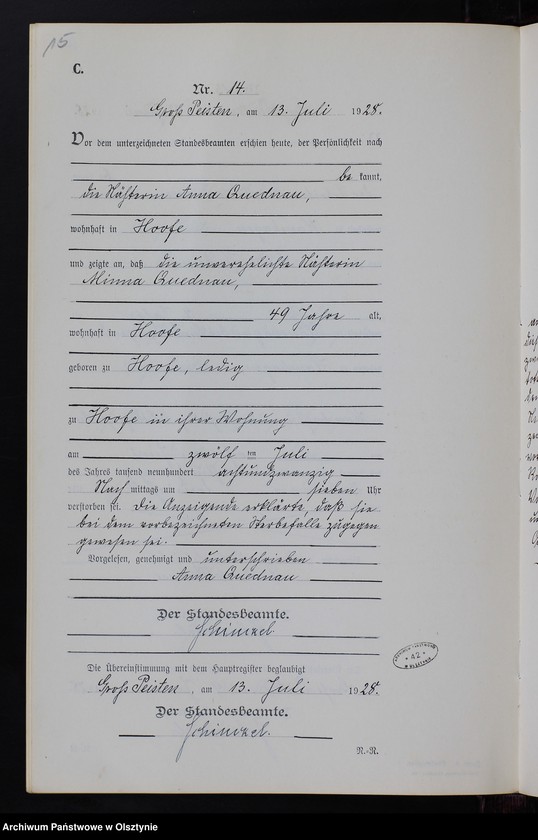 15
C.
Nr. 14.
Groß Peisten, am 13. Juli 1928.
Vor dem unterzeichneten Standesbeamten erschien heute, der Persönlichkeit nach
be kannt,
die Nähterin Anna Quednau,
wohnhaft in Hoofe
und zeigte an, daß die unverehelichte Nähterin
Minna Quednau,
49 Jahre alt,
wohnhaft in Hoofe
geboren zu Hoofe, ledig
zu Hoofe in ihrer Wohnung
am zwölf ten Juli
des Jahres tausend neunhundert achtundzwanzig
Nach mittags um sieben Uhr
verstorben sei. Die Anzeigende erklärte, daß sie
bei dem vorbezeichneten Sterbefalle zugegen
gewesen sei.
Vorgelesen, genehmigt und unterschrieben
Anna Quednau
Der Standesbeamte.
Schinckel
Die Übereinstimmung mit dem Hauptregister beglaubigt
Groß Peisten, am 13. Juli 1928.
Der Standesbeamte.
Schinckel.
N.-N.
* 42 *
Archiwum Państwowe w Olsztynie